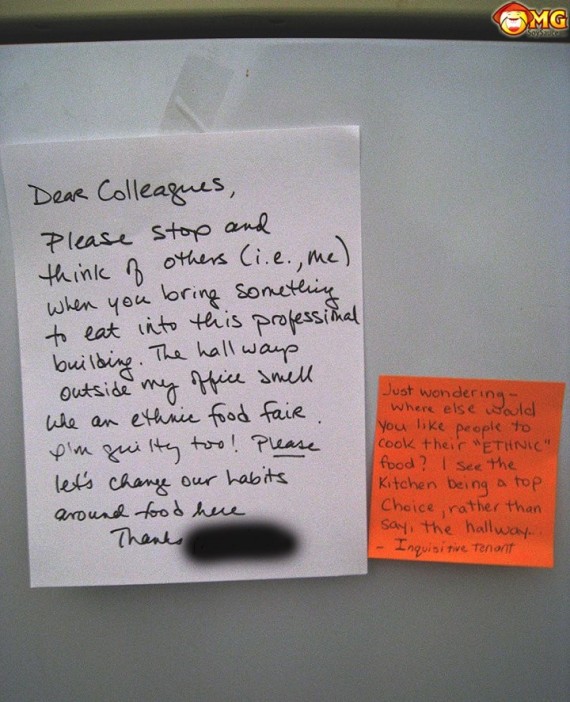 OMG
Dear Colleagues,
Please stop and
think of others (i.e., me)
when you bring something
to eat into this professional
building. The hallways
outside my office smell
like an ethnic food fair.
I'm guilty too! Please
let's change our habits
around food here
Thanks
Just wondering-
where else would
you like people to
cook their "ETHNIC"
food? I see the
Kitchen being a top
Choice, rather than
say, the hallway...
- Inquisitive Tenant